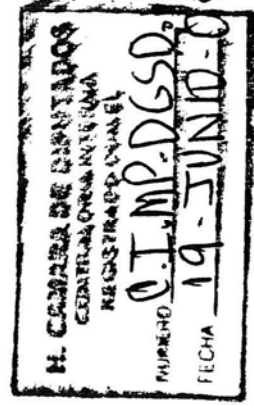 H. CAMARA DE DIPUTADOS
CONTRALORIA INTERNA
REGISTRADO CON EL
NUMERO C.I.MP.DGSD.
FECHA 19-JUNIO-0